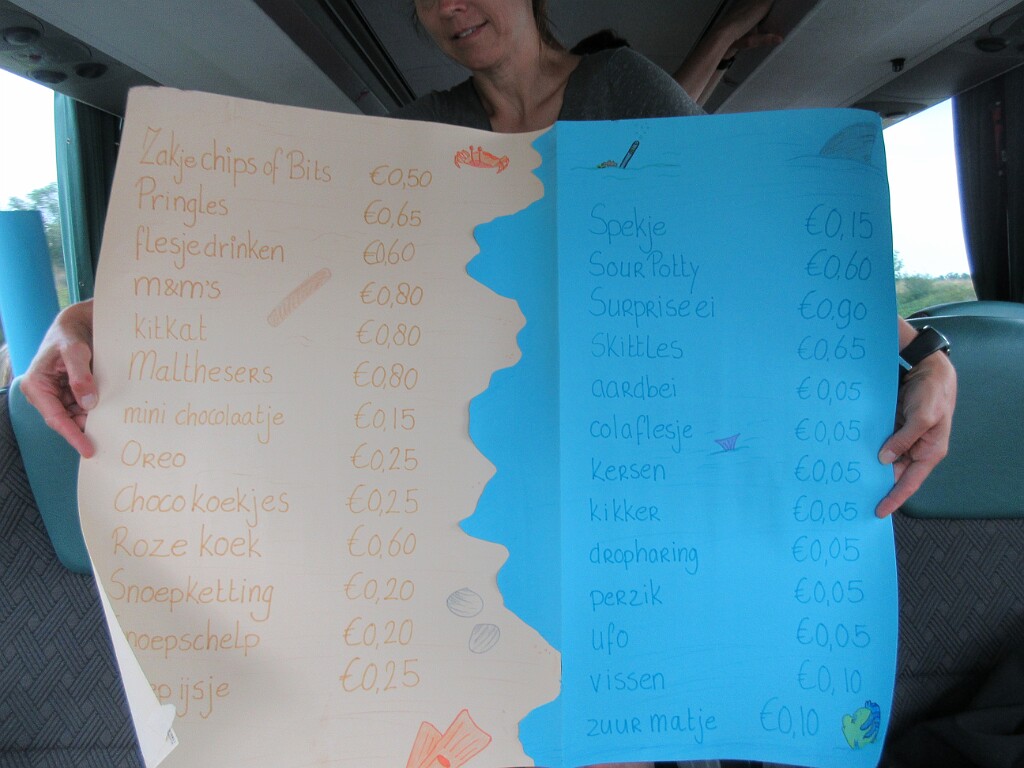 Zakje chips of Bits €0,50
Pringles €0,65
flesje drinken €0,60
m&m's €0,80
kitkat €0,80
Malthesers €0,80
mini chocolaatje €0,15
Oreo €0,25
Choco koekjes €0,25
Roze koek €0,60
Snoepketting €0,20
noepschelp €0,20
ep ijsje €0,25
Spekje €0,15
Sour Potty €0,60
Surprise ei €0,90
Skittles €0,65
aardbei €0,05
colaflesje €0,05
kersen €0,05
kikker €0,05
dropharing €0,05
perzik €0,05
ufo €0,05
vissen €0,10
zuur matje €0,10